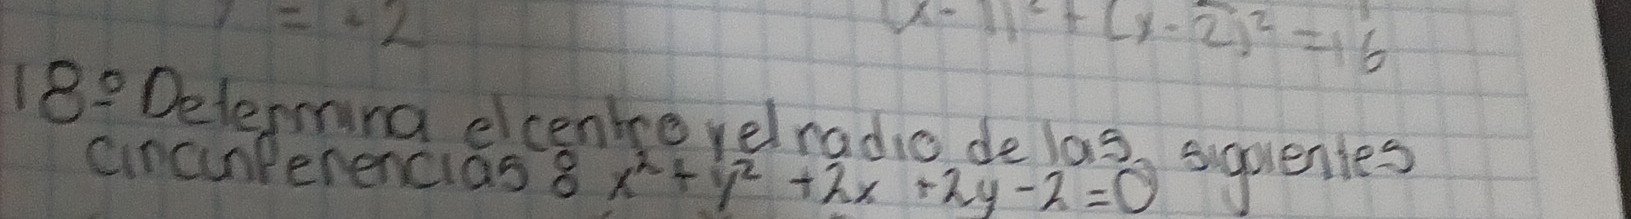 = + 2
(x-1)² + (y-2)² = 16
18º Determina el centro y el radio de las siguientes
circunferencias 8 x² + y² + 2x + 2y - 2 = 0